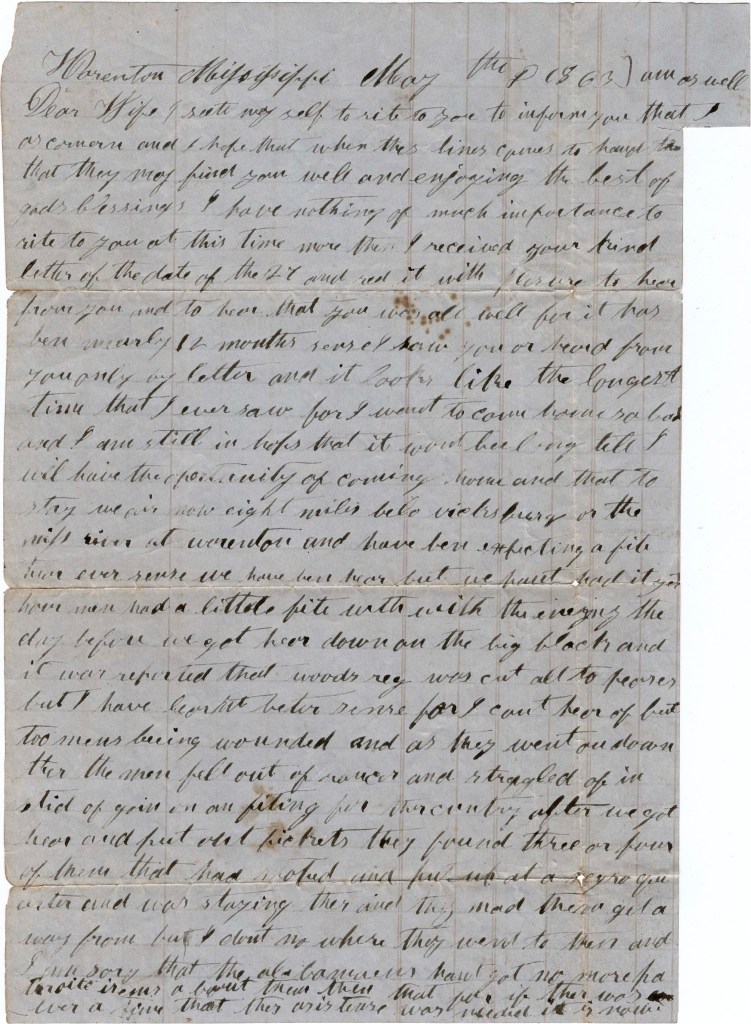 Warenton Mississippi May the 8 1863) am as well
Dear Wife I seate my self to rite to you to inform you that I
as comern and I hope that when thes lines comes to hand
that they may find you well and enjoying the best of
gods blessings I have nothing of much importance to
rite to you at this time more then I received your kind
letter of the date of the 27 and red it with plesure to hear
from you and to hear that you was all well for it has
ben nearly 12 months sense I saw you or heard from
you only by letter and it looks like the longest
time that I ever saw for I want to come home so bad
and I am still in hops that it wont bee long till I
will have the opertunity of coming home and that to
stay we air now eight miles belo vicksburg on the
miss river at warenton and have ben expecting a fite
hear ever sense we have ben hear but we haint had it yet
hour men had a little fite with with the enemy the
day before we got hear down on the big black and
it was reported that woods reg was cut all to peaces
but I have learnt beter sense for I cant hear of but
too mens being wounded and as they went on down
ther the men fell out of and stragled of in
stid of goin on an fiting for ther cuntry after we got
hear and put out pickets they found three or four
of them that had and put up at a negro qu
arter and was staying ther and they mad them git a
way from but I dont no where they went to then and
I am sory that the alabamaens haint got no more pa
troiticisems about them then that for if ther was
ever a time that ther asistense was needed it is now